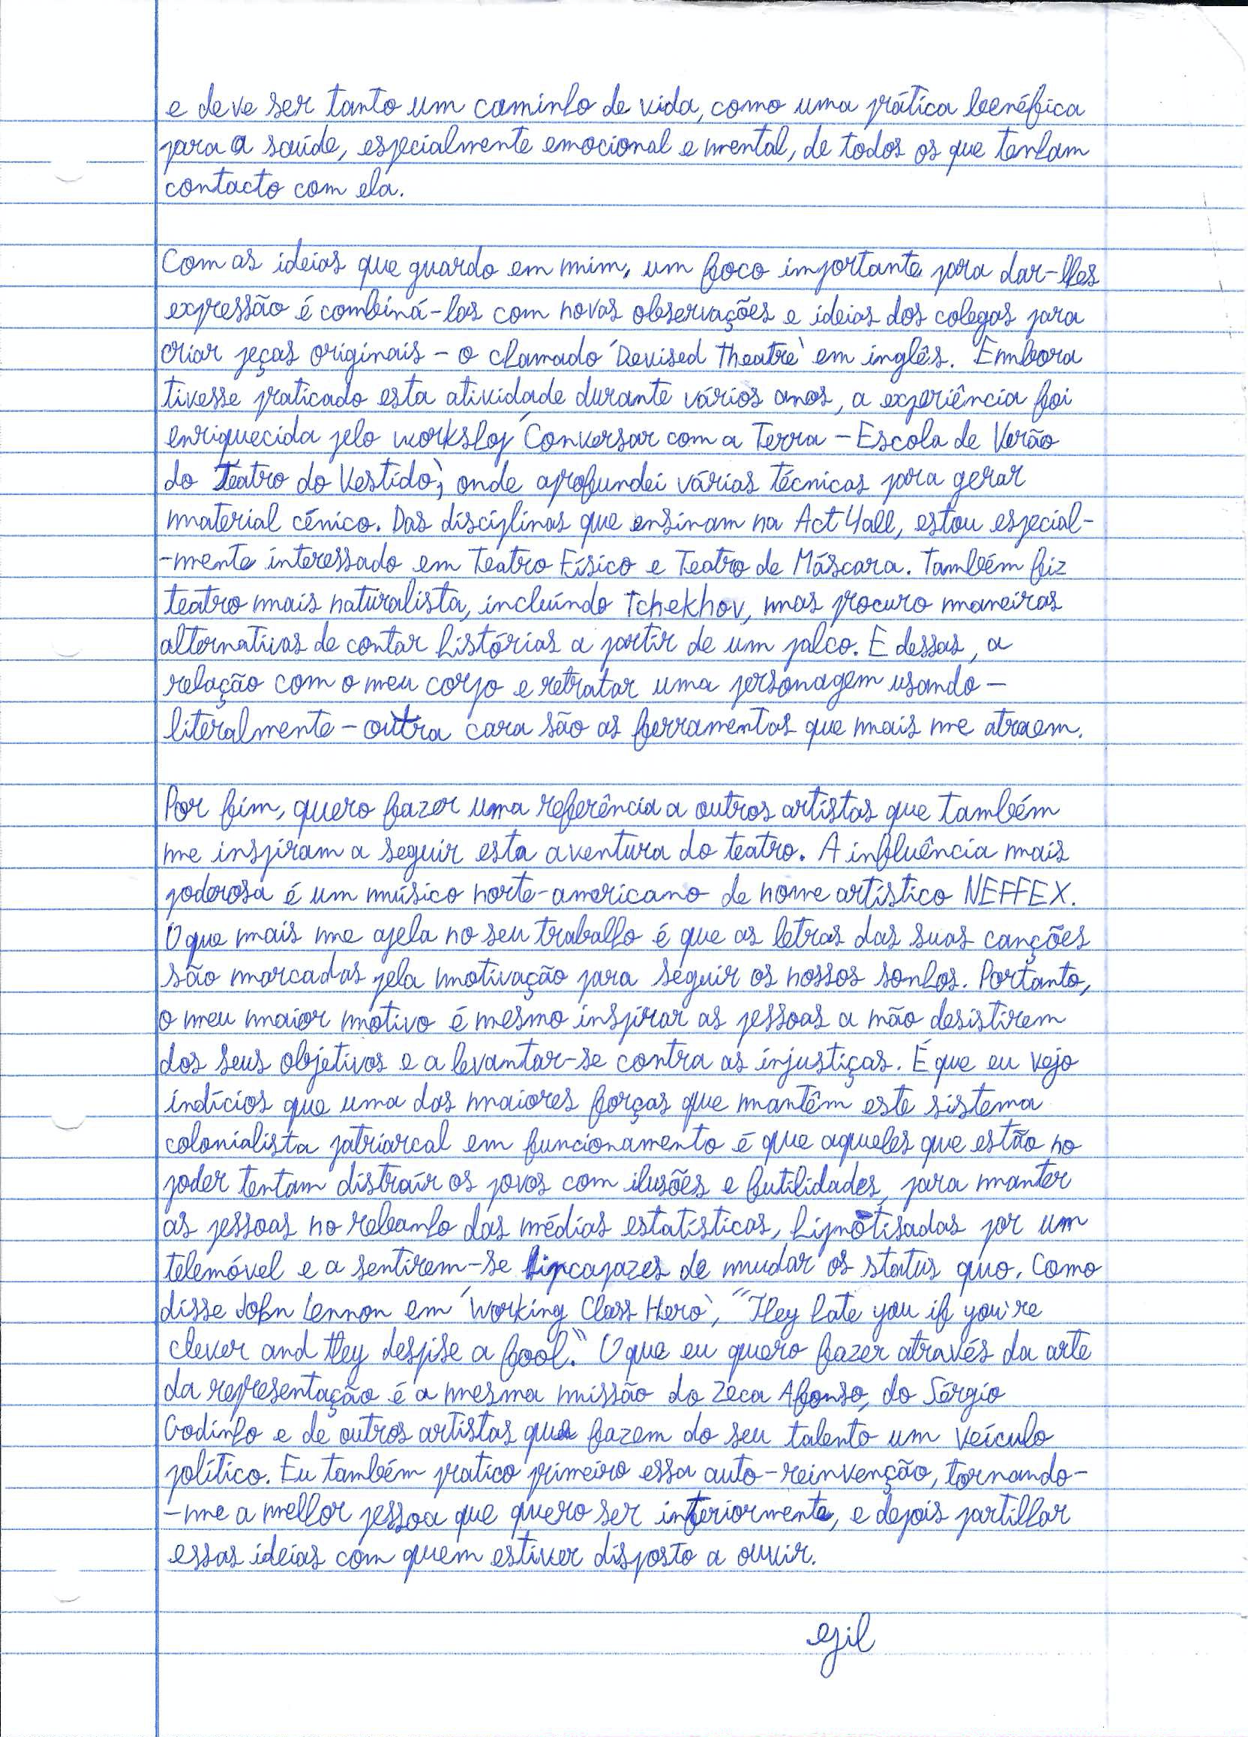 e deve ser tanto um caminho de vida, como uma prática benéfica
para a saúde, especialmente emocional e mental, de todos os que tenham
contacto com ela.
Com as ideias que guardo em mim, um foco importante para dar-lhes
expressão é combiná-las com novas observações e ideias dos colegas para
criar peças originais – o chamado 'Devised Theatre' em inglês. Embora
tivesse praticado esta atividade durante vários anos, a experiência foi
enriquecida pelo workshop 'Conversar com a Terra – Escola de Verão
do Teatro do Vestido', onde aprofundei várias técnicas para gerar
material cénico. Das disciplinas que ensinam na Act4all, estou especial-
-mente interessado em Teatro Físico e Teatro de Máscara. Também fiz
teatro mais naturalista, incluíndo Tchekhov, mas procuro maneiras
alternativas de contar histórias a partir de um palco. E dessas, a
relação com o meu corpo e retratar uma personagem usando –
literalmente – outra cara são as ferramentas que mais me atraem.
Por fim, quero fazer uma referência a outros artistas que também
me inspiram a seguir esta aventura do teatro. A influência mais
poderosa é um músico norte-americano de nome artístico NEFFEX.
O que mais me apela no seu trabalho é que as letras das suas canções
são marcadas pela motivação para seguir os nossos sonhos. Portanto,
o meu maior motivo é mesmo inspirar as pessoas a não desistirem
dos seus objetivos e a levantar-se contra as injustiças. É que eu vejo
indícios que uma das maiores forças que mantêm este sistema
colonialista patriarcal em funcionamento é que aqueles que estão no
poder tentam distraír os povos com ilusões e futilidades, para manter
as pessoas no rebanho das médias estatísticas, hipnotisadas por um
telemóvel e a sentirem-se incapazes de mudar os status quo. Como
disse John Lennon em 'Working Class Hero', "They hate you if you're
clever and they despise a fool." O que eu quero fazer através da arte
da representação é a mesma missão do Zeca Afonso, do Sérgio
Godinho e de outros artistas que fazem do seu talento um veículo
político. Eu também pratico primeiro essa auto-reinvenção, tornando-
-me a melhor pessoa que quero ser interiormente, e depois partilhar
essas ideias com quem estiver disposto a ouvir.
Gil